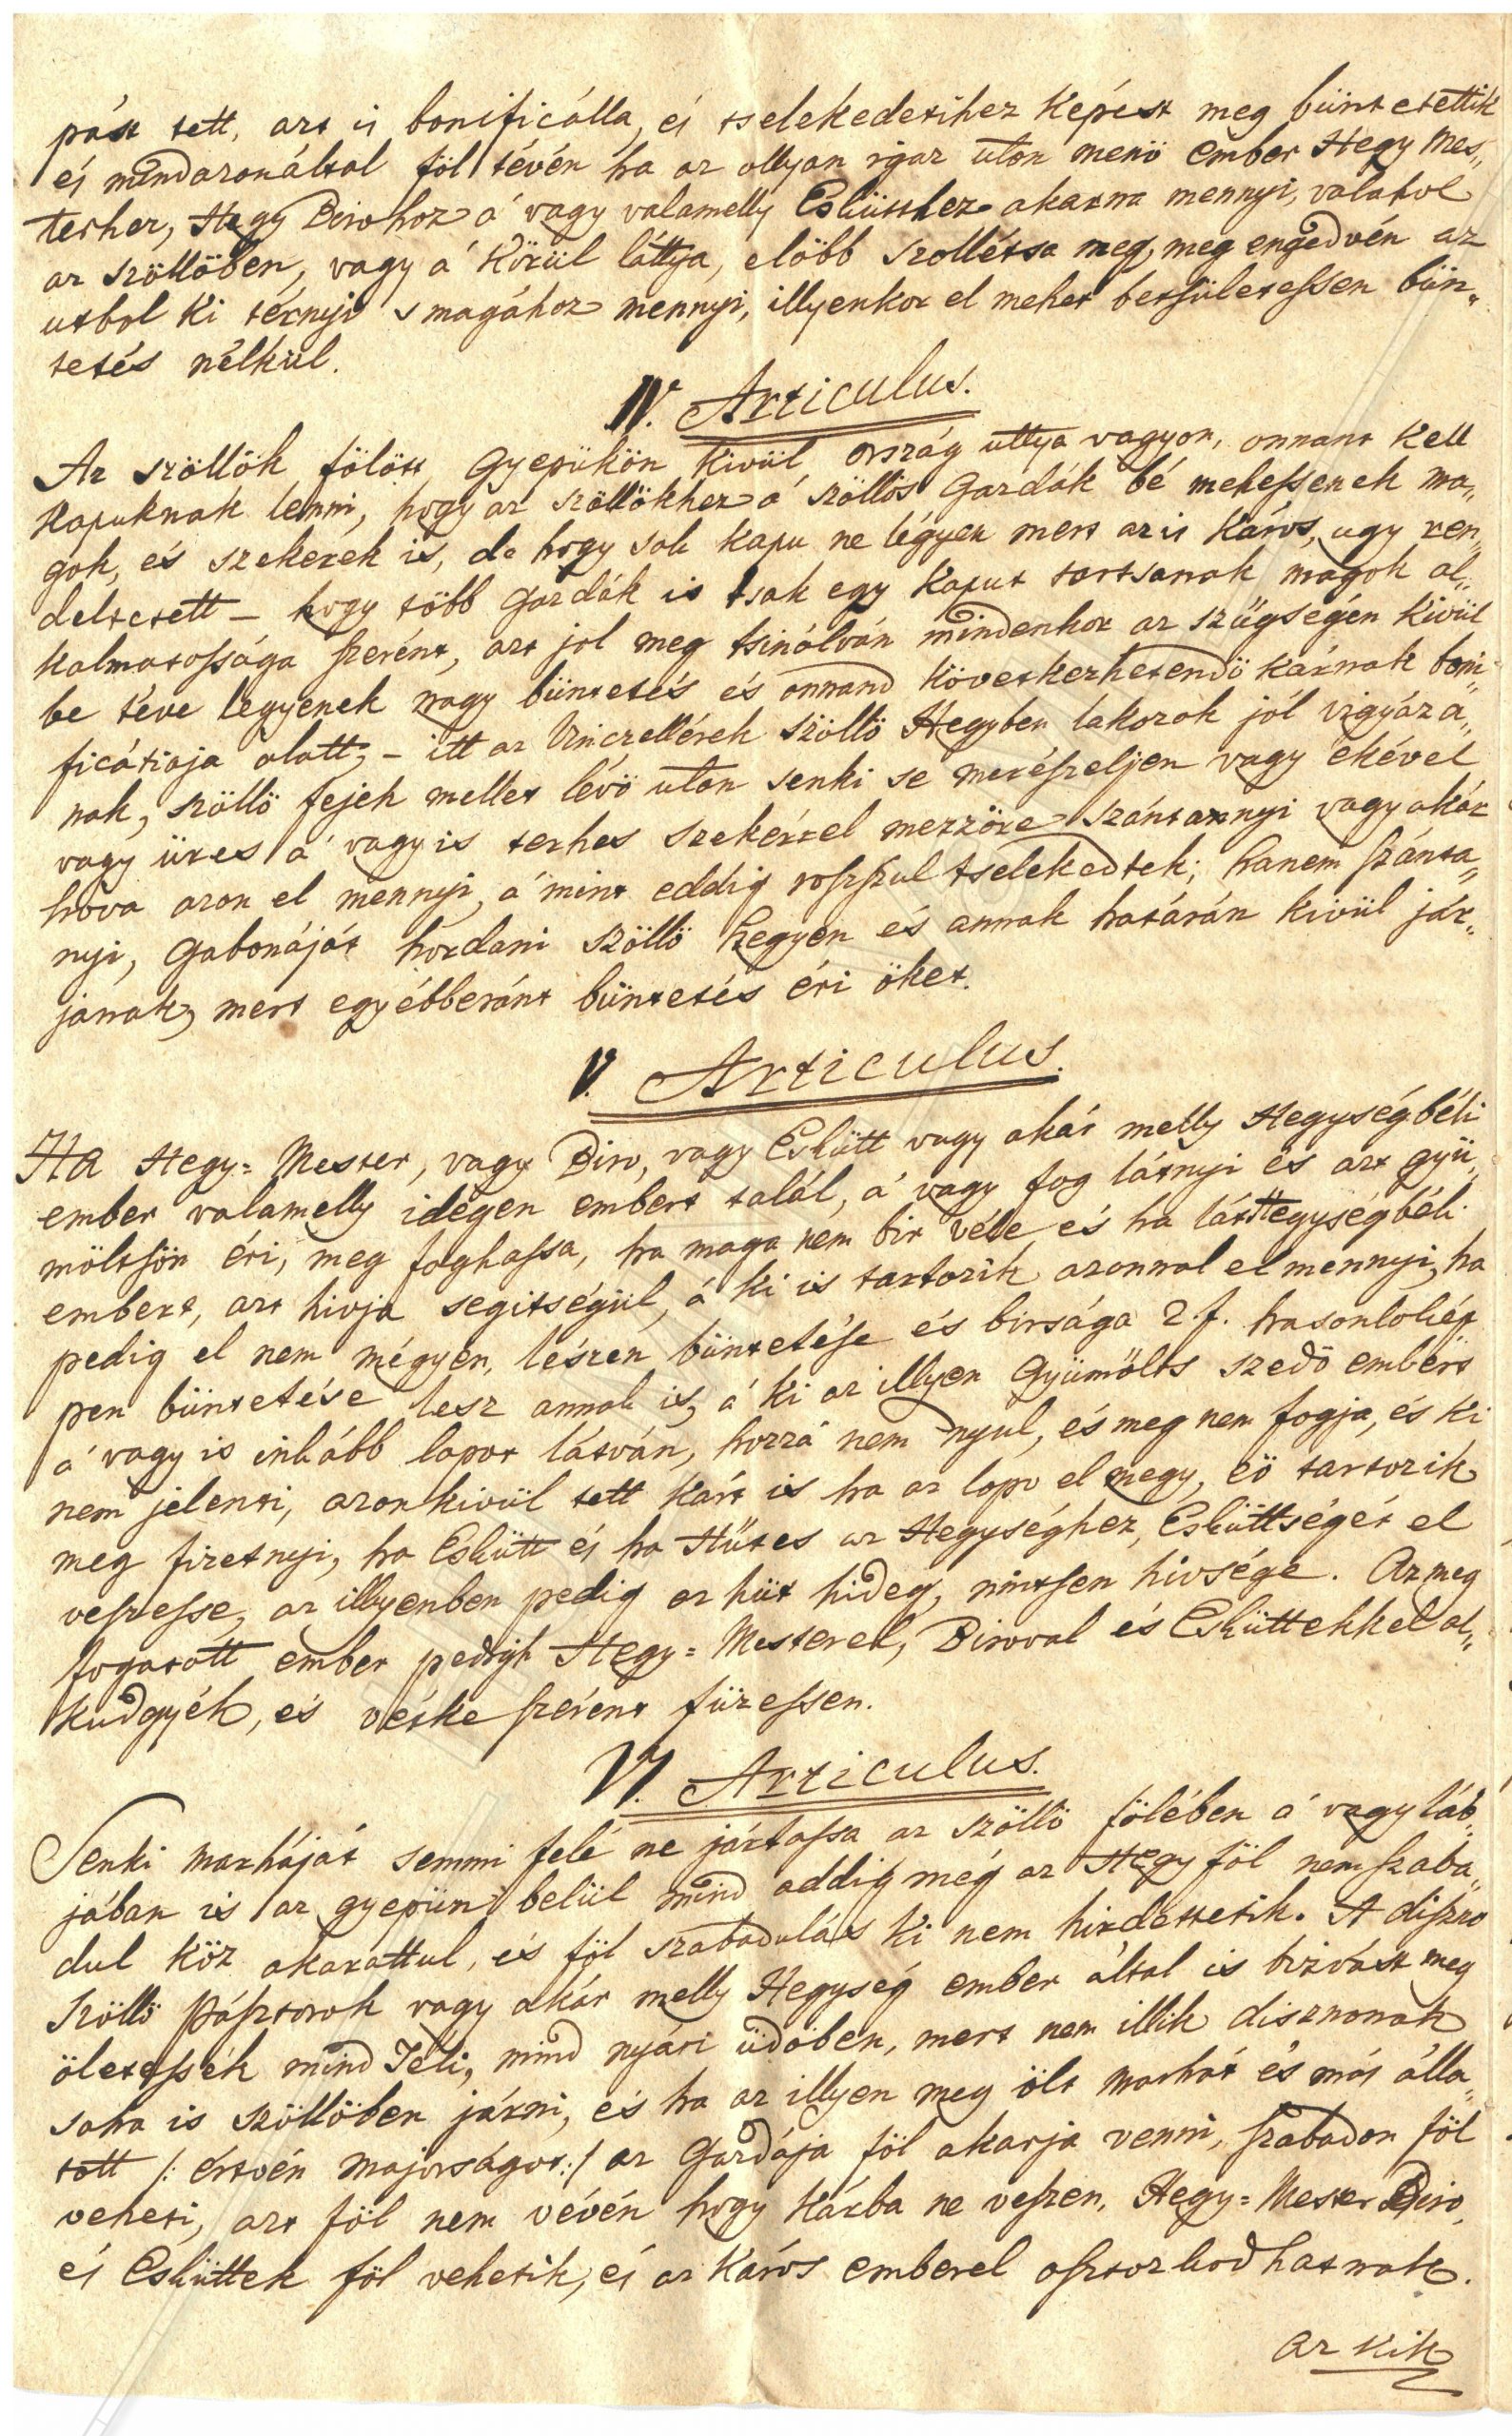 pást tett, azt is bonificálla, és tselekedetihez képest meg büntetettik
és mindazonáltal föl tévén ha az ollyan igaz úton menö ember Hegy Mes„
terhez, Hegy Biróhoz a' vagy valamelly Esküthez akarna mennyi, valahol
az szöllöben, vagy a' körül láttya, elöbb szollétsa meg, meg engedvén az
utbol ki térnyi s magához mennyi, illyenkor el mehet betsületessen bün„
tetés nélkül.
IV. Articulus.
Az szöllök fölött Gyepükön kivül ország uttya vagyon, onnant kell
kapuknak lenni, hogy az szöllökhez a' szöllös Gazdák bé mehessenek ma„
gok, és szekerek is, de hogy sok kapu ne légyen mert az is káros, ugy ren„
deltetett – hogy több Gazdák is tsak egy kaput tartsanak magok al„
kalmatossága szerént, azt jol meg tsinálván mindenkor az szügségén kivül
be téve legyenek nagy büntetés és onnand következhetendö kárnak boni„
ficátioja alatt; – itt az Vinczellérek szöllö Hegyben lakozok jól vigyázza„
nak, szöllö fejek mellet lévö úton senki se merészeljen vagy ekével
vagy üres a' vagy is terhes szekérrel mezzöre szántannyi vagy akár
hova azon el mennyi, a' mint eddig rosszul tselekedtek; hanem szánta„
nyi, Gabonáját hordani szöllö hegyen és annak határán kivül jár„
janak, mert egyébberánt büntetés éri öket.
V. Articulus.
Ha Hegy=Mester, vagy Biro, vagy Eskütt vagy akár melly Hegységbéli
ember valamelly idegen embert talál, a' vagy fog látnyi és azt gyü„
möltsön éri, meg foghassa, ha maga nem bir véle és ha lát Hegységbéli
embert, azt hivja segitségül, a' ki is tartozik azonnal el mennyi, ha
pedig el nem mégyen, lészen büntetése és birsága 2.f. hasonloliép
pen büntetése lesz annak is, a' ki az illyen Gyümölts szedö embert
a' vagy is inkább lopot látván, hozzá nem nyul, és meg nem fogja, és ki
nem jelenti, azonkivül tett kárt is ha az lopo el megy, eö tartozik
meg fizetnyi, ha Eskütt és ha Hütes az Hegységhez, Esküttségét el
veszesse, az illyenben pedig az hüt hideg, nintsen hivsége. Az meg
fogatott ember pedigh Hegy=Mesterel, Biroval és Esküttekkel al„
kudgyék, és vétke szerént füzessen.
VI. Articulus.
Senki marháját semmi felé ne jártassa az szöllö fölében a' vagy láb„
jában is az gyepün belül mind addig még az Hegy föl nem szaba„
dul köz akarattul, és föl szabadulás ki nem hirdettetik. A diszno
Szöllö Pásztorok vagy akár melly Hegység ember által is bizvást meg
öletessék mind Téli, mind nyári üdöben, mert nem illik disznonak
soha is szöllöben járni, és ha az illyen meg ölt marhát és más álla„
tott /: értvén majorságot :/ az Gazdája föl akarja venni, szabadon föl
veheti, azt föl nem vévén hogy kárba ne veszen, Hegy=Mester Biro,
és Esküttek föl vehetik, és az káros emberel osztozkodhatnak.
az kik